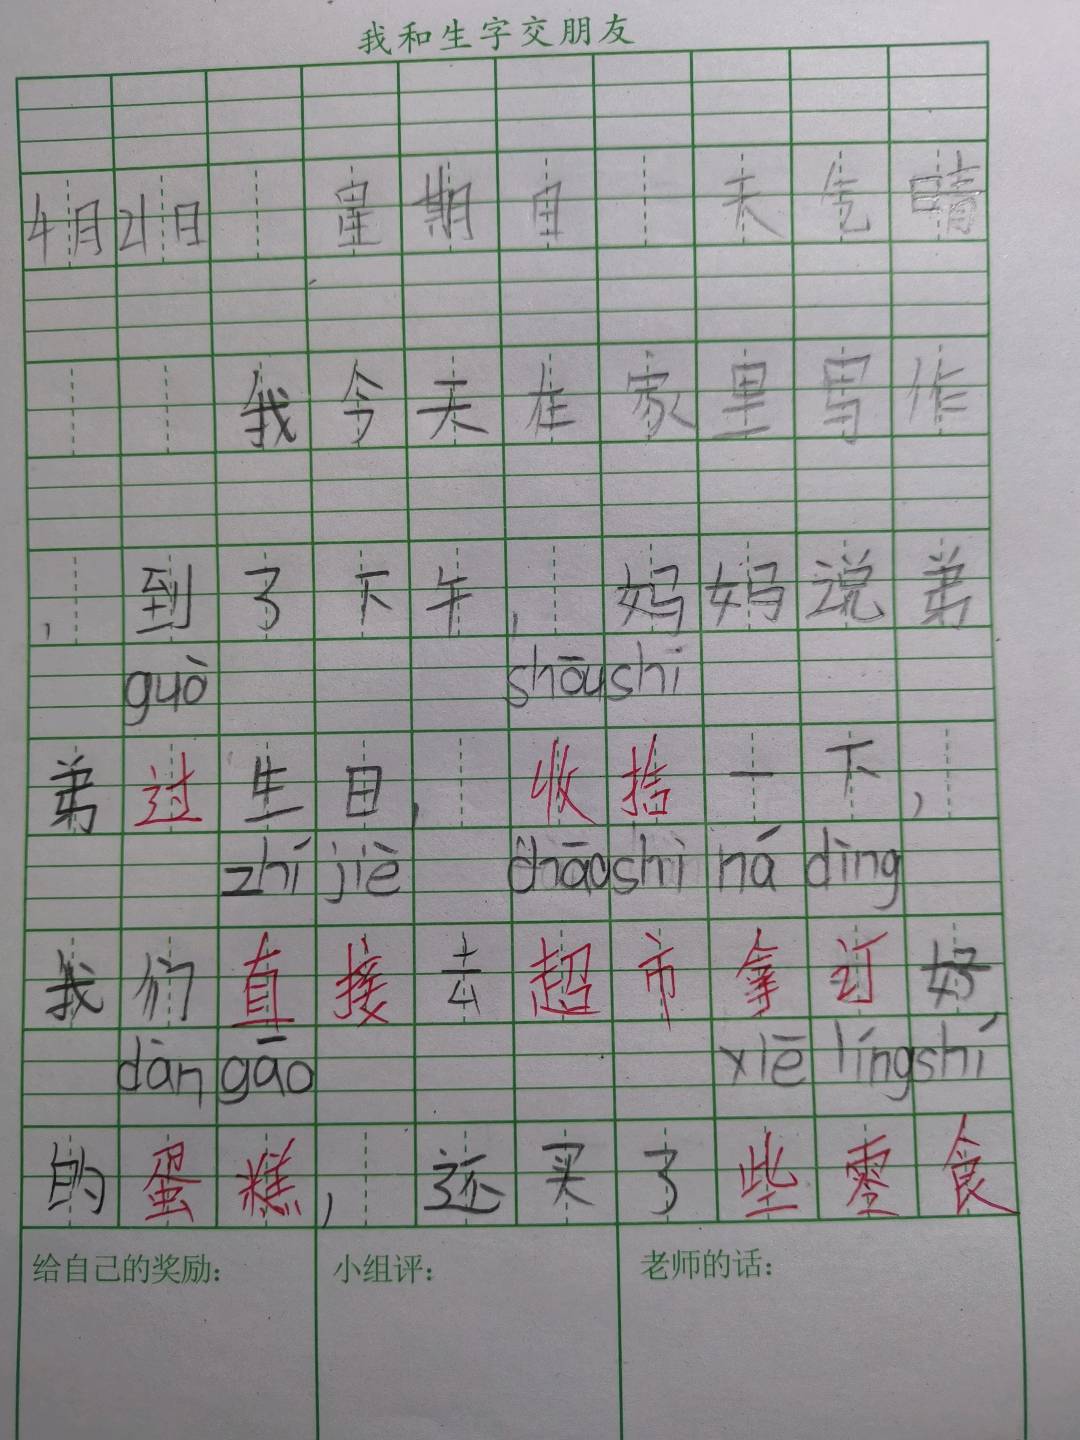 我和生字交朋友
4月21日 星期日 天气晴
我今天在家里写作
，到了下午，妈妈说弟
guò shōu shi
弟过生日，收拾一下，
zhí jiè chāo shì ná dìng
我们直接去超市拿订好
dàn gāo xiē líng shí
的蛋糕，还买了些零食
给自己的奖励： 小组评： 老师的话：